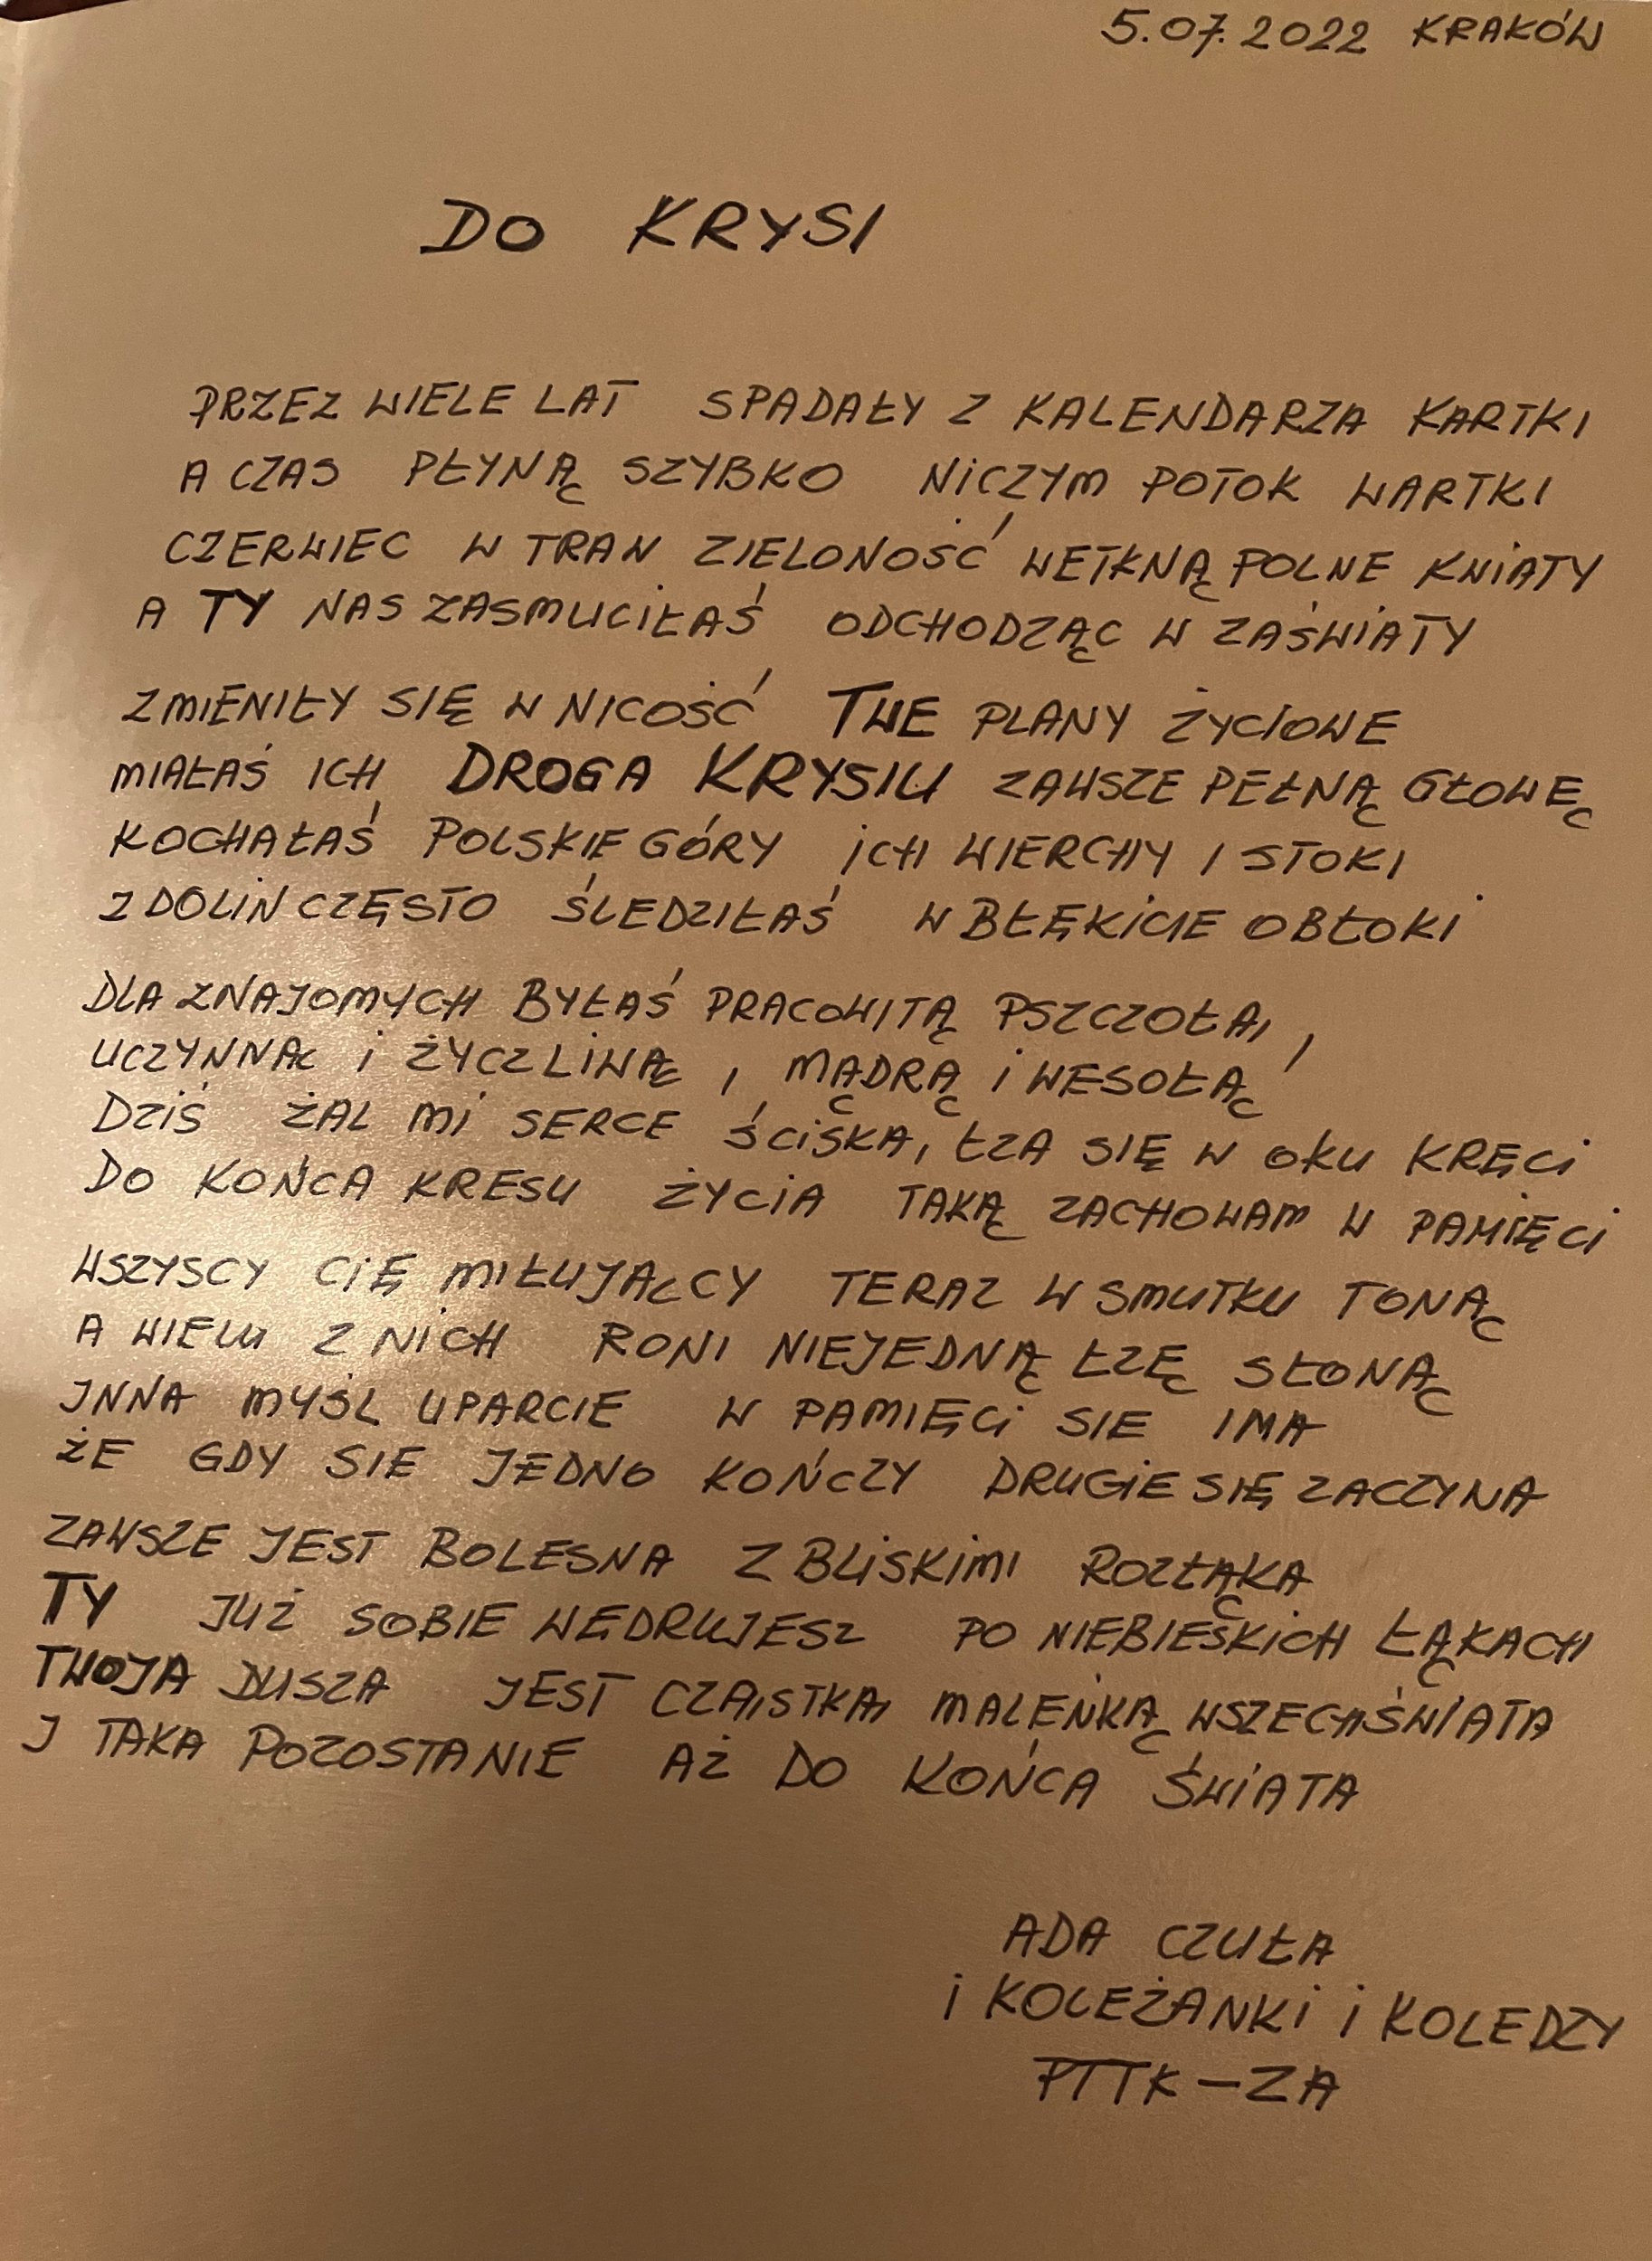 5.07.2022 KRAKÓW
DO KRYSI
PRZEZ WIELE LAT SPADAŁY Z KALENDARZA KARTKI
A CZAS PŁYNĄ SZYBKO NICZYM POTOK WARTKI
CZERWIEC W TRAW ZIELONOŚĆ WETKNĄ POLNE KWIATY
A TY NAS ZASMUCIŁAŚ ODCHODZĄC W ZAŚWIATY
ZMIENIŁY SIĘ W NICOŚĆ TWE PLANY ŻYCIOWE
MIAŁAŚ ICH DROGA KRYSIU ZAWSZE PEŁNĄ GŁOWĘ
KOCHAŁAŚ POLSKIE GÓRY ICH WIERCHY I STOKI
Z DOLIN CZĘSTO ŚLEDZIŁAŚ W BŁĘKICIE OBŁOKI
DLA ZNAJOMYCH BYŁAŚ PRACOWITĄ PSZCZOŁĄ,
UCZYNNĄ I ŻYCZLIWĄ, MĄDRĄ I WESOŁĄ
DZIŚ ŻAL MI SERCE ŚCISKA, ŁZA SIĘ W OKU KRĘCI
DO KOŃCA KRESU ŻYCIA TAKĄ ZACHOWAM W PAMIĘCI
WSZYSCY CIĘ MIŁUJĄCY TERAZ W SMUTKU TONĄ
A WIELU Z NICH RONI NIEJEDNĄ ŁZĘ SŁONĄ
INNA MYŚL UPARCIE W PAMIĘCI SIE IMA
ŻE GDY SIE JEDNO KOŃCZY DRUGIE SIĘ ZACZYNA
ZAWSZE JEST BOLESNA Z BLISKIMI ROZŁĄKA
TY JUŻ SOBIE WĘDRUJESZ PO NIEBIESKICH ŁĄKACH
TWOJA DUSZA JEST CZĄSTKĄ MALEŃKĄ WSZECHŚWIATA
I TAKA POZOSTANIE AŻ DO KOŃCA ŚWIATA
ADA CZUŁA
I KOLEŻANKI I KOLEDZY
PTTK – ZA